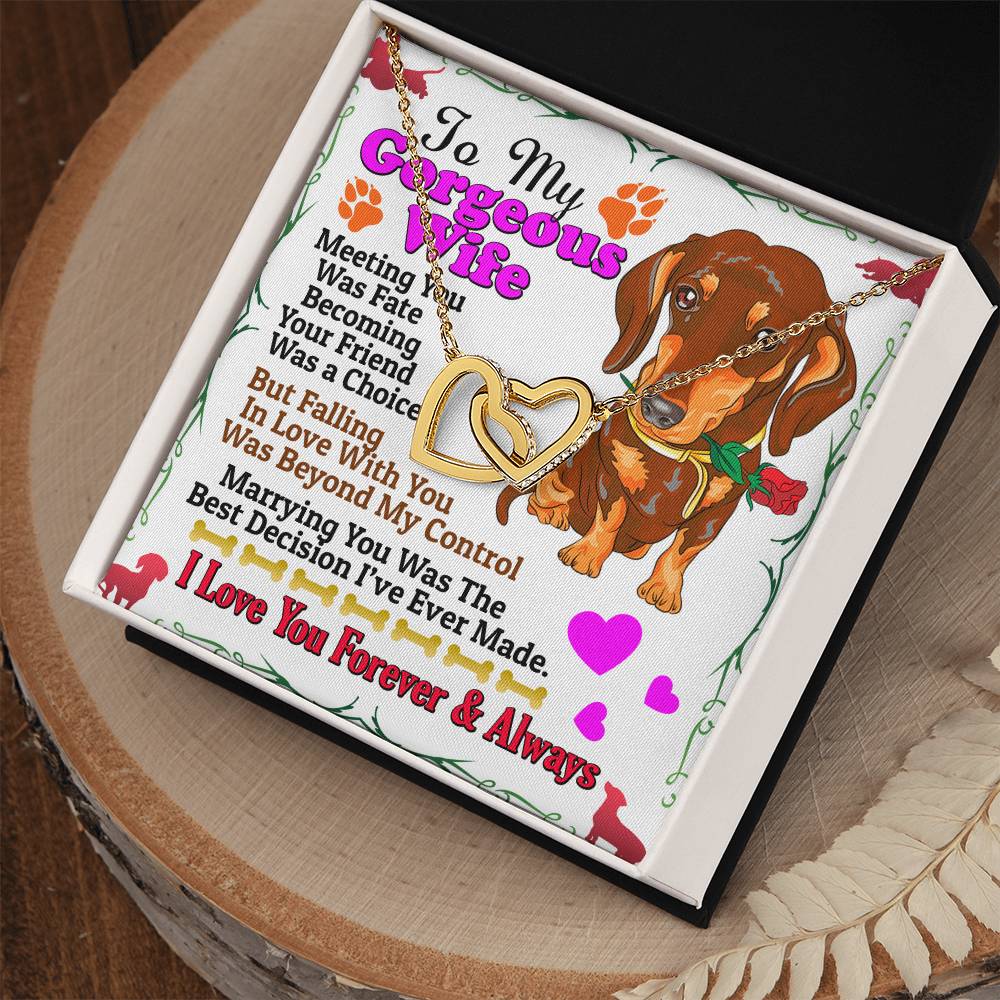 To My
Gorgeous
Wife
Meeting You
Was Fate
Becoming
Your Friend
Was a Choice
But Falling
In Love With You
Was Beyond My Control
Marrying You Was The
Best Decision I've Ever Made.
I Love You Forever & Always